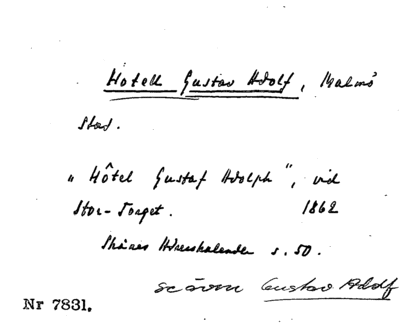 Hotell Gustav Adolf, Malmö
stad.
"Hôtel Gustaf Adolph", vid
Stor-Torget. 1862
Skånes Adresskalender s. 50.
se även Gustav Adolf
Nr 7831.